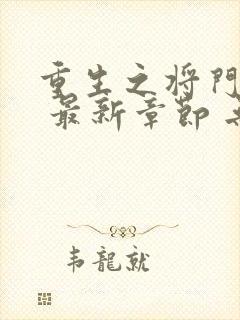 重生之将門
最新章節
韦龍就